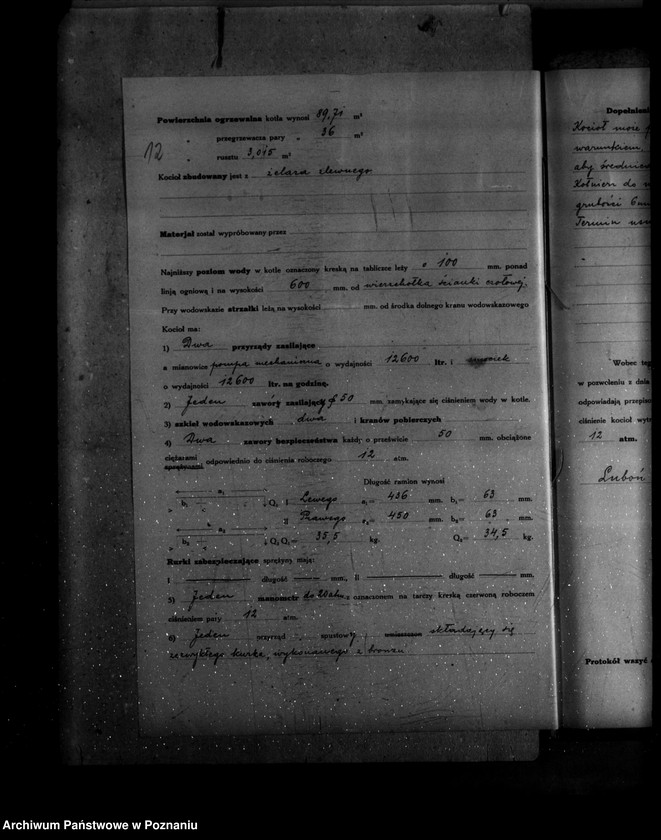 Powierzchnia ogrzewalna kotła wynosi 89,71 m²
12
" przegrzewacza pary " 36 m²
" rusztu 3,015 m²
Kocioł zbudowany jest z żelaza zlewnego
Materjał został wypróbowany przez
Najniższy poziom wody w kotle oznaczony kreską na tabliczce leży o 100 mm. ponad
linją ogniową i na wysokości 600 mm. od wierzchołka ścianki czołowej.
Przy wodowskazie strzałki leżą na wysokości mm. od środka dolnego kranu wodowskazowego
Kocioł ma:
1) Dwa przyrządy zasilające
a mianowicie pompa mechaniczna o wydajności 12600 ltr. i
o wydajności 12600 ltr. na godzinę.
2) Jeden zawór zasilający ø 50 mm. zamykające się ciśnieniem wody w kotle.
3) szkieł wodowskazowych dwa i kranów pobierczych
4) Dwa zawory bezpieczeństwa każdy o prześwicie 50 mm. obciążone
ciężarami
sprężynami odpowiednio do ciśnienia roboczego 12 atm.
Długość ramion wynosi
a₁ b₁ c Q₁ I Lewego a₁= 436 mm. b₁= 63 mm.
a₂ II Prawego a₂= 450 mm. b₂= 63 mm.
b₂ c Q₂ Q₁= 35,5 kg. Q₂= 34,5 kg.
Rurki zabezpieczające sprężyny mają:
I długość mm., II długość mm.
5) Jeden manometr do 20 atm. z oznaczonem na tarczy kreską czerwoną roboczem
ciśnieniem pary 12 atm.
6) Jeden przyrząd spustowy składający się
zwykłego kurka, wykonanego z bronzu
Dopełnieni
Kocioł może
warunkiem,
aby średnica
Kołnierz do
grubości 6
Termin
Wobec
w pozwoleniu z dnia
odpowiadają przepiso
ciśnienie kocioł wytr
12 atm.
Luboń
Protokół wszyć
Archiwum Państwowe w Poznaniu